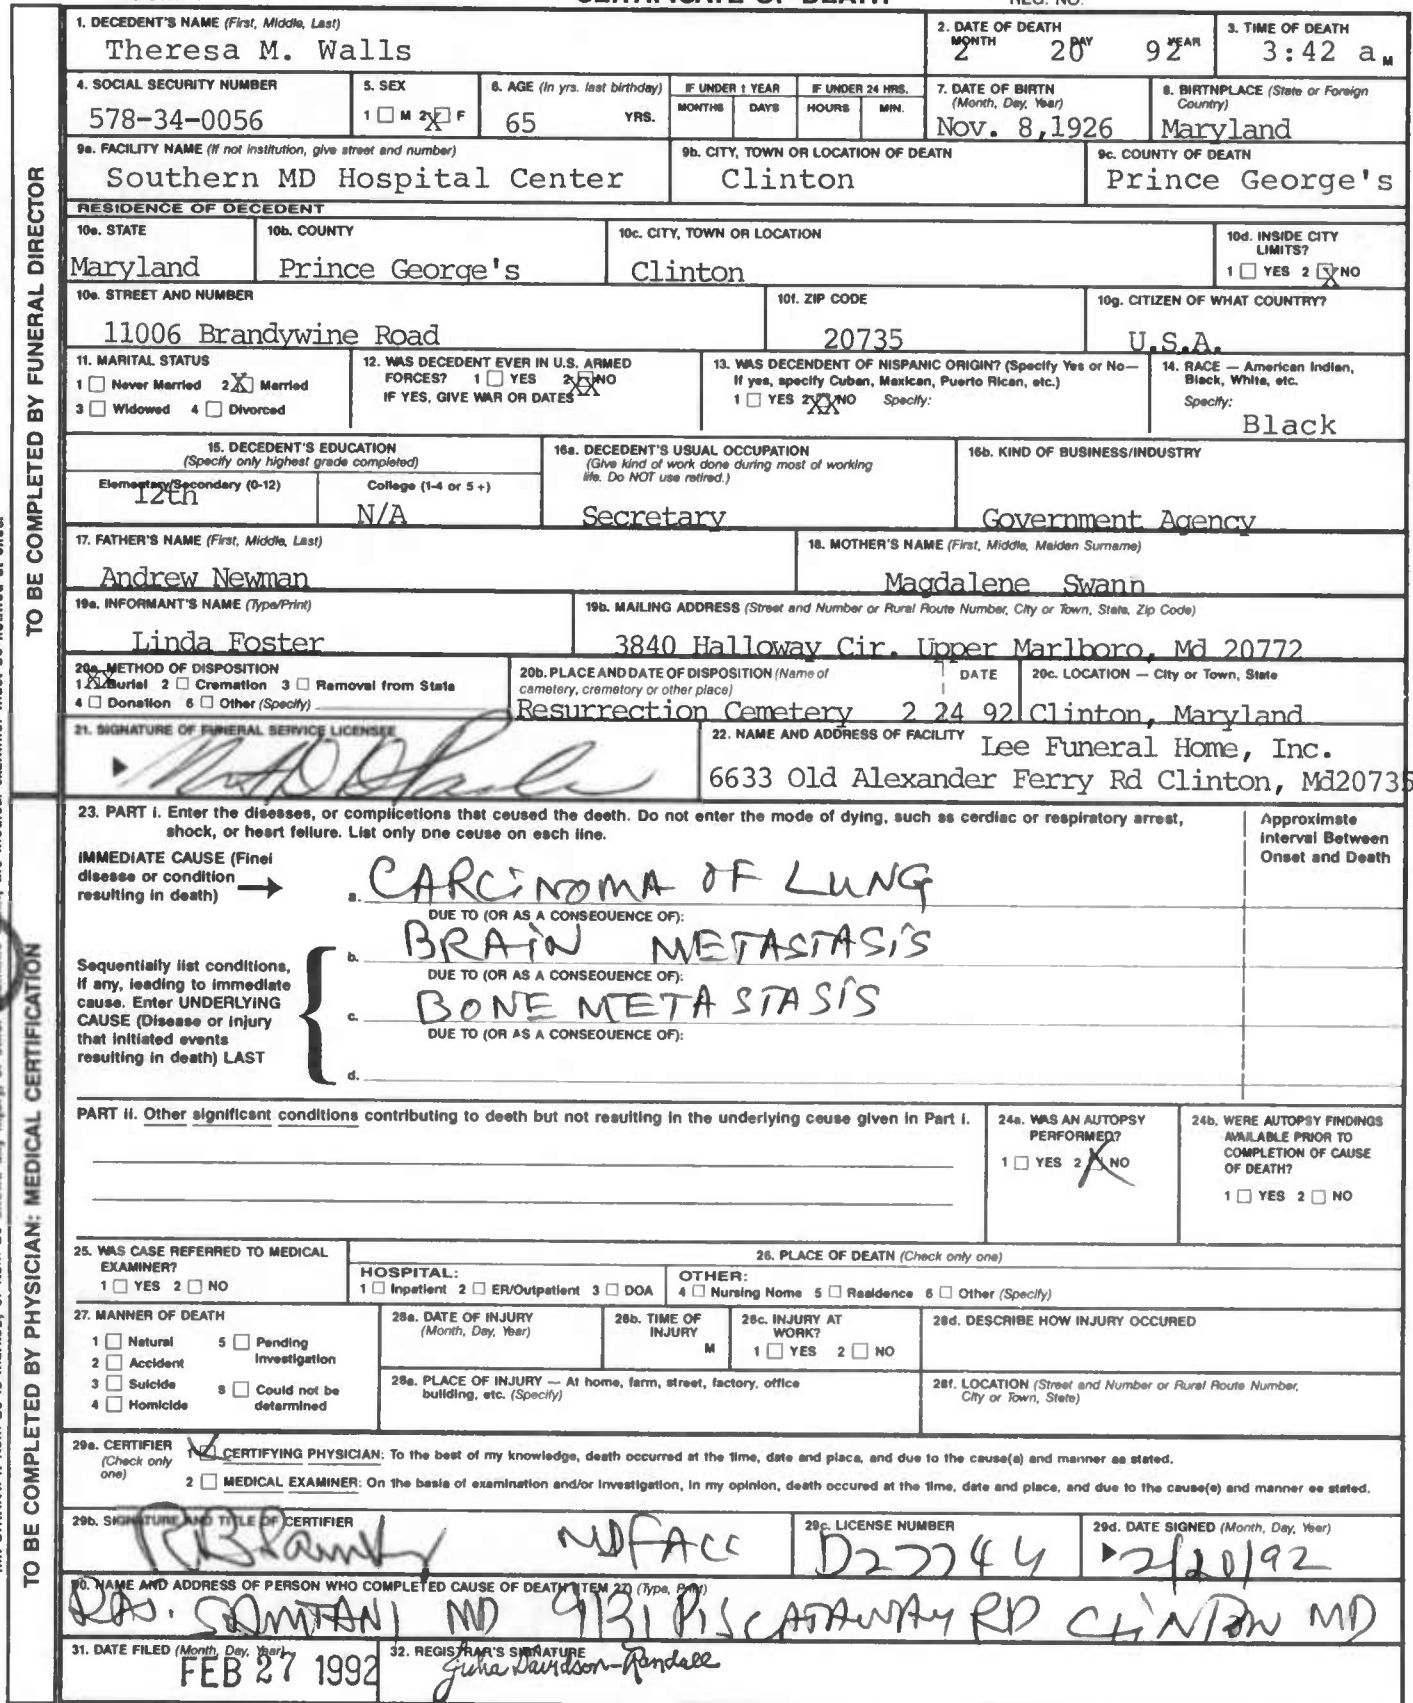 1. DECEDENT'S NAME (First, Middle, Last)
Theresa M. Walls
2. DATE OF DEATH
MONTH DAY YEAR
2 20 92
3. TIME OF DEATH
3:42 a M
4. SOCIAL SECURITY NUMBER
578-34-0056
5. SEX
1 M 2 X F
6. AGE (In yrs. last birthday)
65 YRS.
IF UNDER 1 YEAR
MONTHS DAYS
IF UNDER 24 HRS.
HOURS MIN.
7. DATE OF BIRTH
(Month, Day, Year)
Nov. 8,1926
8. BIRTHPLACE (State or Foreign
Country)
Maryland
9a. FACILITY NAME (If not institution, give street and number)
Southern MD Hospital Center
9b. CITY, TOWN OR LOCATION OF DEATH
Clinton
9c. COUNTY OF DEATH
Prince George's
RESIDENCE OF DECEDENT
10a. STATE
Maryland
10b. COUNTY
Prince George's
10c. CITY, TOWN OR LOCATION
Clinton
10d. INSIDE CITY
LIMITS?
1 YES 2 X NO
10e. STREET AND NUMBER
11006 Brandywine Road
10f. ZIP CODE
20735
10g. CITIZEN OF WHAT COUNTRY?
U.S.A.
11. MARITAL STATUS
1 Never Married 2 X Married
3 Widowed 4 Divorced
12. WAS DECEDENT EVER IN U.S. ARMED
FORCES? 1 YES 2 XX NO
IF YES, GIVE WAR OR DATES
13. WAS DECENDENT OF HISPANIC ORIGIN? (Specify Yes or No—
If yes, specify Cuban, Mexican, Puerto Rican, etc.)
1 YES 2 XX NO Specify:
14. RACE — American Indian,
Black, White, etc.
Specify:
Black
15. DECEDENT'S EDUCATION
(Specify only highest grade completed)
Elementary/Secondary (0-12)
12th
College (1-4 or 5 +)
N/A
16a. DECEDENT'S USUAL OCCUPATION
(Give kind of work done during most of working
life. Do NOT use retired.)
Secretary
16b. KIND OF BUSINESS/INDUSTRY
Government Agency
17. FATHER'S NAME (First, Middle, Last)
Andrew Newman
18. MOTHER'S NAME (First, Middle, Maiden Surname)
Magdalene Swann
19a. INFORMANT'S NAME (Type/Print)
Linda Foster
19b. MAILING ADDRESS (Street and Number or Rural Route Number, City or Town, State, Zip Code)
3840 Halloway Cir. Upper Marlboro, Md 20772
20a. METHOD OF DISPOSITION
1 XX Burial 2 Cremation 3 Removal from State
4 Donation 6 Other (Specify)
20b. PLACE AND DATE OF DISPOSITION (Name of
cemetery, crematory or other place)
DATE
Resurrection Cemetery 2 24 92
20c. LOCATION — City or Town, State
Clinton, Maryland
21. SIGNATURE OF FUNERAL SERVICE LICENSEE
22. NAME AND ADDRESS OF FACILITY Lee Funeral Home, Inc.
6633 Old Alexander Ferry Rd Clinton, Md20735
TO BE COMPLETED BY FUNERAL DIRECTOR
23. PART I. Enter the diseases, or complications that caused the death. Do not enter the mode of dying, such as cardiac or respiratory arrest,
shock, or heart failure. List only one cause on each line.
Approximate
Interval Between
Onset and Death
IMMEDIATE CAUSE (Final
disease or condition
resulting in death)
a. CARCINOMA OF LUNG
DUE TO (OR AS A CONSEQUENCE OF):
b. BRAIN METASTASIS
DUE TO (OR AS A CONSEQUENCE OF):
Sequentially list conditions,
if any, leading to immediate
cause. Enter UNDERLYING
CAUSE (Disease or injury
that initiated events
resulting in death) LAST
c. BONE METASTASIS
DUE TO (OR AS A CONSEQUENCE OF):
d.
PART II. Other significant conditions contributing to death but not resulting in the underlying cause given in Part I.
24a. WAS AN AUTOPSY
PERFORMED?
1 YES 2 X NO
24b. WERE AUTOPSY FINDINGS
AVAILABLE PRIOR TO
COMPLETION OF CAUSE
OF DEATH?
1 YES 2 NO
25. WAS CASE REFERRED TO MEDICAL
EXAMINER?
1 YES 2 NO
26. PLACE OF DEATH (Check only one)
HOSPITAL:
1 Inpatient 2 ER/Outpatient 3 DOA
OTHER:
4 Nursing Home 5 Residence 6 Other (Specify)
27. MANNER OF DEATH
1 Natural 5 Pending
Investigation
2 Accident
3 Suicide 8 Could not be
determined
4 Homicide
28a. DATE OF INJURY
(Month, Day, Year)
28b. TIME OF
INJURY
M
28c. INJURY AT
WORK?
1 YES 2 NO
28d. DESCRIBE HOW INJURY OCCURED
28e. PLACE OF INJURY — At home, farm, street, factory, office
building, etc. (Specify)
28f. LOCATION (Street and Number or Rural Route Number,
City or Town, State)
29a. CERTIFIER
(Check only
one)
1 CERTIFYING PHYSICIAN: To the best of my knowledge, death occurred at the time, date and place, and due to the cause(s) and manner as stated.
2 MEDICAL EXAMINER: On the basis of examination and/or investigation, in my opinion, death occured at the time, date and place, and due to the cause(s) and manner as stated.
29b. SIGNATURE AND TITLE OF CERTIFIER
MD FACC
29c. LICENSE NUMBER
D27744
29d. DATE SIGNED (Month, Day, Year)
2/20/92
30. NAME AND ADDRESS OF PERSON WHO COMPLETED CAUSE OF DEATH (ITEM 27) (Type, Print)
RAJ. SAMTANI MD 9131 PISCATAWAY RD CLINTON MD
31. DATE FILED (Month, Day, Year)
FEB 27 1992
32. REGISTRAR'S SIGNATURE
Julia Davidson-Randall
TO BE COMPLETED BY PHYSICIAN: MEDICAL CERTIFICATION